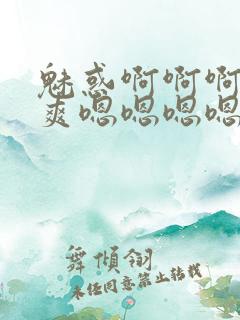 魅惑啊啊啊
爽嗯嗯嗯嗯
舞倾翎
未经同意禁止转载